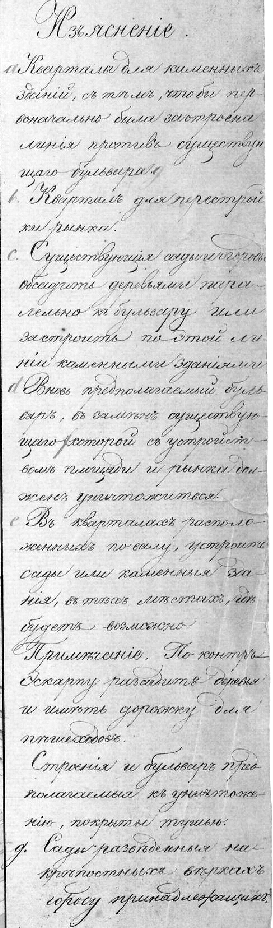 Изъясненіе.
a. Кварталы для каменныхъ
зданій, съ тѣмъ, чтобы пер
воначально была застроена
линія противъ существую
щаго бульвара
b. Кварталъ для построй
ки рынка.
c. Существующія сады
обсадить деревьями
лельно къ бульвару или
застроить по этой ли
ніи каменными зданіями
d. Вновь предполагаемый буль
варъ, въ замѣнъ существую
щаго, которой съ устройст
вомъ площади и рынка дол
женъ уничтожиться
e. Въ кварталахъ располо
женныхъ по валу, устроить
сады или каменныя зда
нія, въ тѣхъ мѣстахъ, гдѣ
будетъ возможно
Примѣчаніе. По контръ
эскарпу разсадить деревья
и имѣть дорожку для
пѣшеходовъ.
Строенія и бульваръ пред
полагаемыя къ уничтоже
нію, покрыты тушью.
g. Сады разведенные на
крѣпостныхъ веркахъ
городу принадлежащихъ